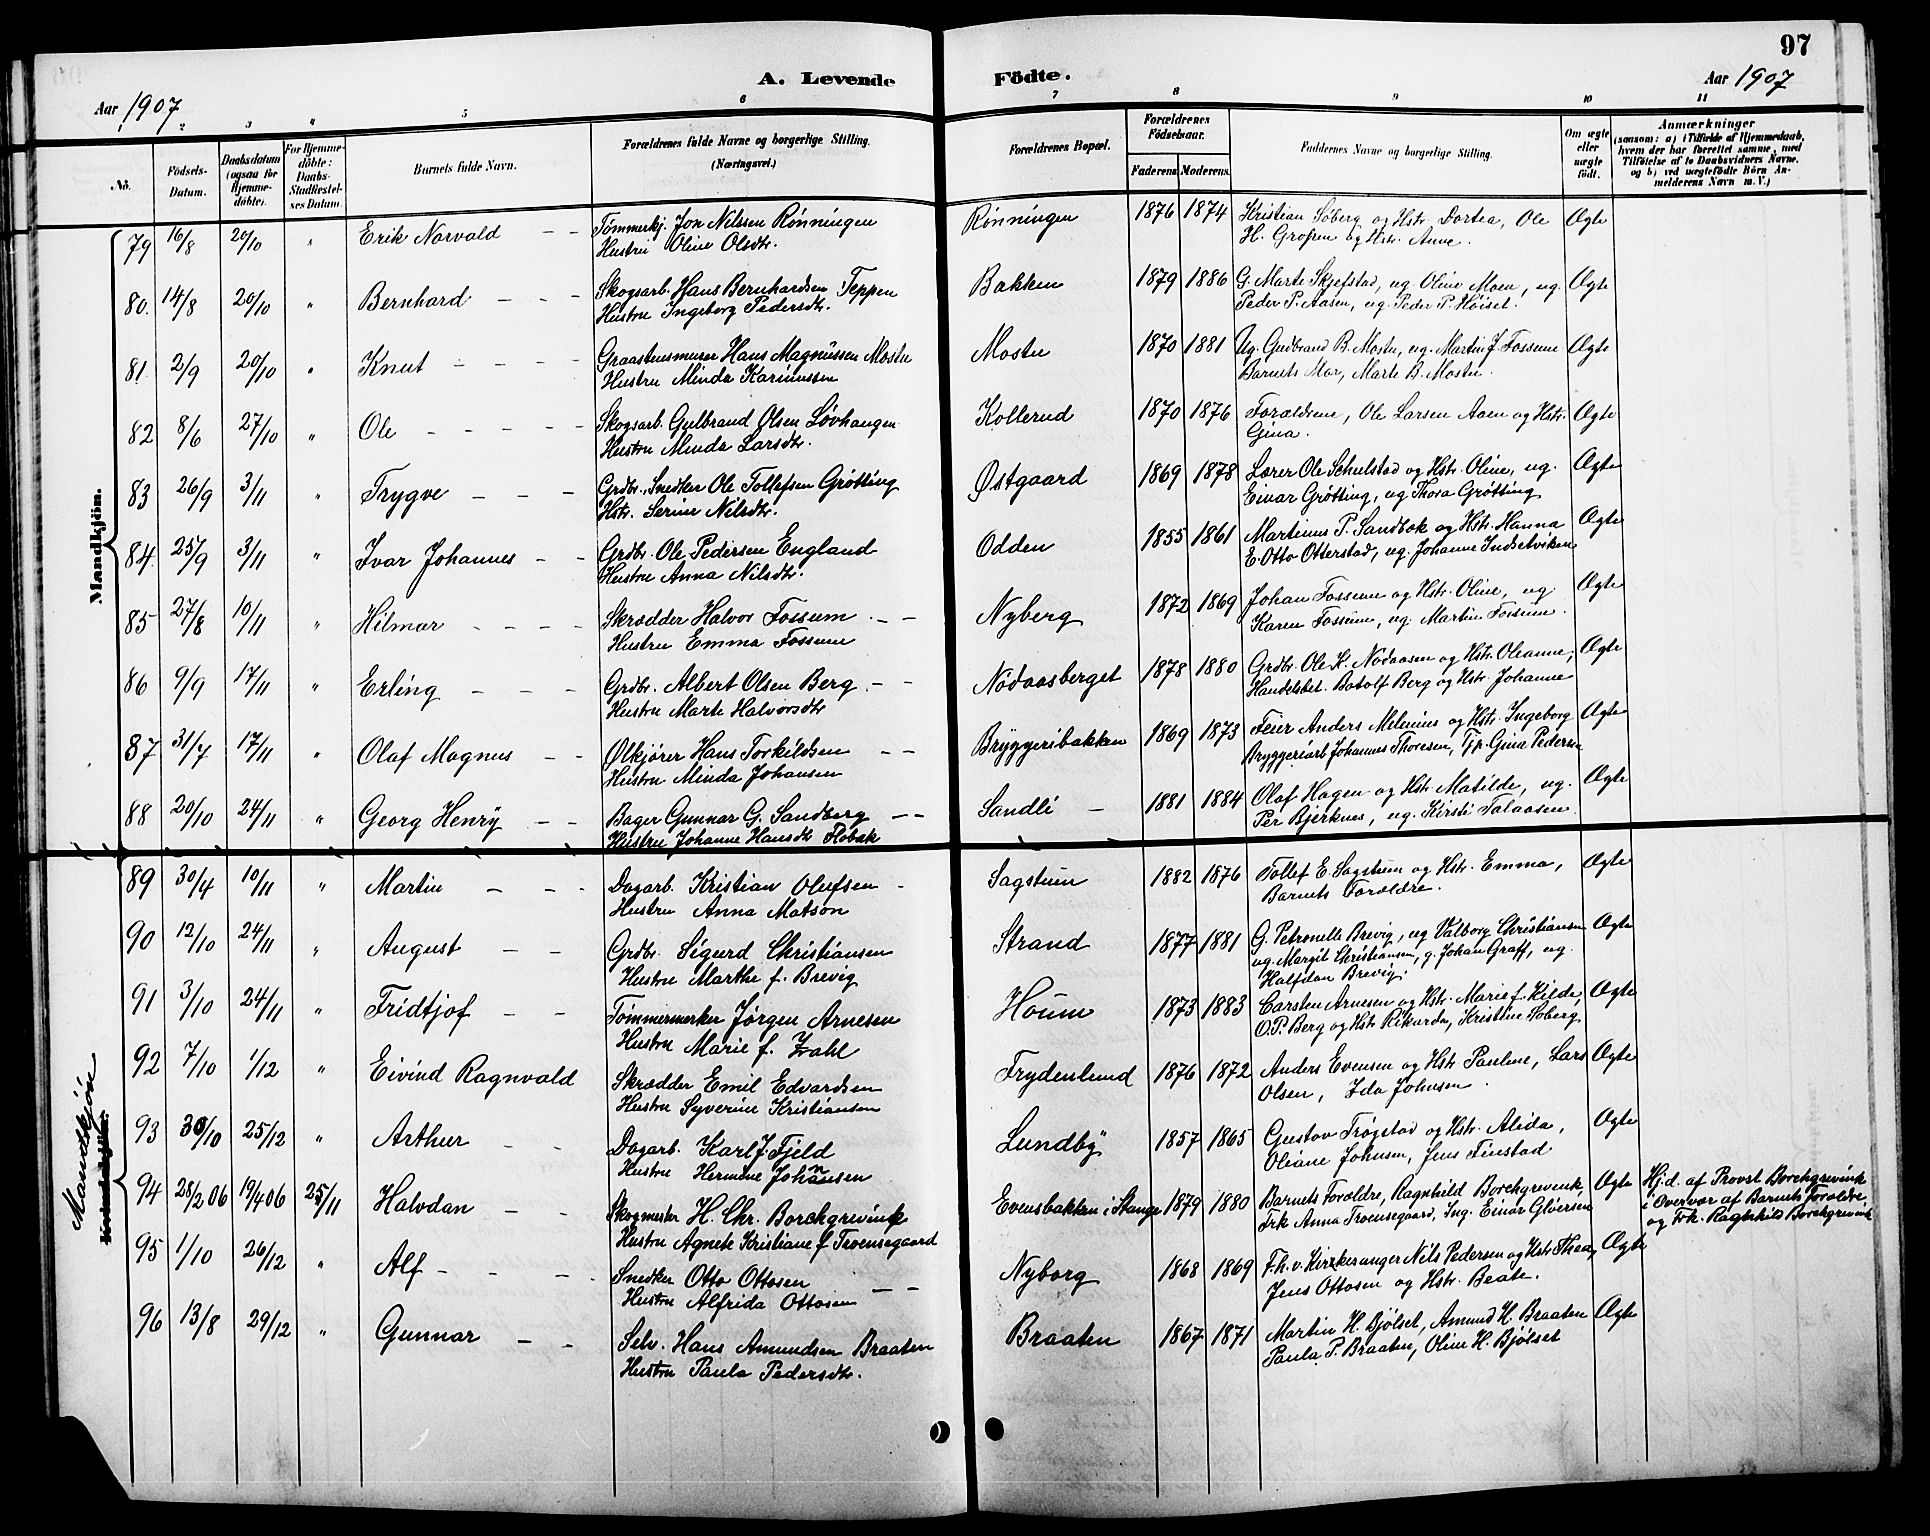 97
A. Levende Födte.
Aar 1907
Aar 1907
1 2 3 4 5 6 7 8 9 10 11
No.
Födsels-Datum.
Daabsdatum (ogsaa for Hjemme-döbte).
For Hjemme-döbte: Daabs-Stadfæstel-ses Datum.
Barnets fulde Navn.
Forældrenes fulde Navne og borgerlige Stilling. (Næringsvei.)
Forældrenes Bopæl.
Forældrenes Födselsaar.
Faderens. Moderens.
Faddernes Navne og borgerlige Stilling.
Om ægte eller uægte födt.
Anmærkninger
(saasom: a) i Tilfælde af Hjemmedaab, hvem der har forrettet samme, med Tilföielse af to Daabsvidners Navne. og b) ved uægtefödte Börn An-melderens Navn m. V.)
Mandkjön.
79 16/8 20/10 " Erik Norvald — — Tømmerkj. Jon Nilsen Rønningen Rønningen 1876 1874 Kristian Søberg og Hstr. Dortea, Ole Ægte
Hustru Oline Olsdtr. H. Grossen og Hstr. Anne.
80. 14/8 20/10 " Bernhard — — — Skogsarb. Hans Bernhardsen Teppen Bakken 1879 1886 G. Marte Skjefstad, ug. Oline Moen, ug. Ægte
Hustru Ingeborg Pedersdtr. Peder P. Aasen, ug. Peder P. Høiset.
81. 2/9 20/10 " Knut — — — — Graastensmurer Hans Magnussen Mostu Mostu 1870 1881 Ug. Gudbrand B. Mostu, ug. Martin J. Fossum Ægte
Hustru Minda Karinussen Barnets Mor, Marte B. Mostu.
82 8/6 27/10 " Ole — — — — Skogsarb. Gulbrand Olsen Løvhaugen Kollerud 1870 1876 Forældrene, Ole Larsen Aaen og Hstr. Ægte
Hustru Minda Larsdtr. Gina.
83 26/9 3/11 " Trygve — — — Grdbr. Snedker Ole Tollefsen Grøtting Østgaard 1869 1878 Lærer Ole Schulstad og Hstr. Oline, ug. Ægte
Hstr. Serine Nilsdtr. Einar Grøtting, ug Thora Grøtting
84. 25/9 3/11 " Ivar Johannes — — Grdbr. Ole Pedersen England Odden 1855 1861 Martinus P. Sandbæk og Hstr. Hanna Ægte
Hustru Anna Nilsdtr. E. Otto Otterstad, ug. Johanne Indsetviken
85 27/8 10/11 " Hilmar — — — — Skrædder Halvor Fossum — — Nyberg 1872 1869 Johan Fossum og Hstr. Oline, ug. Ægte
Hustru Emma Fossum Karen Fossum, ug. Martin Fossum.
86 9/9 17/11 " Erling — — — Grdbr. Albert Olsen Berg — — Nødaasberget 1878 1880 Grdbr. Ole K. Nødaasen og Hstr. Oleanne, Ægte
Hustru Marte Halvorsdtr Handelsbet. Botolf Berg og Hstr. Johanne
87 31/7 17/11 " Olaf Magnus — — Ølkjører Hans Torkildsen — — Bryggeribakken 1869 1873 Feier Anders Melenius og Hstr. Ingeborg Ægte
Hustru Minda Johansen Bryggeriarb Johannes Thoresen, Tjp. Gina Pedersen
88 20/10 24/11 " Georg Henry — — Bager Gunnar G. Sandberg — — Sandli — 1881 1884 Olaf Hagen og Hstr Matilde, ug. Ægte
Hustru Johanne Hansdtr Flobak Per Bjerknes, ug. Kirsti Talaasen
89 30/4 10/11 " Martin — — — Dagarb. Kristian Olufsen — Sagstuen 1882 1876 Tollef E. Sagstuen og Hstr. Emma, Ægte
Hustru Anna Matson Barnets Forældre.
90 12/10 24/11 " August — — Grdbr. Sigurd Christiansen Strand 1877 1881 G. Petronelle Brevig, ug Valborg Christiansen Ægte
Hustru Marthe f. Brevig ug. Margit Christiansen, g. Johan Graff, ug.
Halfdan Brevig.
91 3/10 24/11 " Fridtjof — — Tømmermerker Jørgen Arnesen Houm 1873 1883 Carsten Arnesen og Hstr. Marie f. Kilde, Ægte
Hustru Marie f. Zahl O.P. Berg og Hstr Rikarda, Kristine Soberg
Mandkjøn
92 7/10 1/12 " Eivind Ragnvald Skrædder Emil Edvardsen Frydenlund 1876 1872 Anders Evensen og Hstr Pauline, Lars Ægte
Hustru Syverine Kristiansen Olsen, Ida Johnsen.
93 30/10 25/12 " Arthur — — Dagarb. Karl J. Fjeld Lundby 1857 1865 Gustav Trøgstad og Hstr. Alida, Ægte
Hustru Hermine Johansen Oliane Johnsen, Jens Finstad
94 28/2 06 19/4 06 25/11 Halvdan — — Skogmester H. Chr. Borchgrevink Evensbakken i Stange 1879 1880 Barnets Forældre, Ragnhild Borchgrevink, Ægte Hj.d. af Provst Borchgrevink
Hustru Agnete Kristiane f Troensegaard Frk Anna Troensegaard, Ing. Einar Gløersen i Overvær af Barnets Forældre
og Frk. Ragnhild Borchgrevink
95 1/10 26/12 " Alf — — — Snedker Otto Ottosen — — Nyborg 1868 1869 F.h.v. Kirkesanger Nils Pedersen og Hstr. Thea, Ægte
Hustru Alfrida Ottosen Jens Ottosen og Hstr. Beate.
96 13/8 29/12 " Gunnar — — Selv. Hans Amundsen Braaten Braaten 1867 1871 Martin H. Bjølset, Amund H. Braaten Ægte
Hustru Paula Pedersdtr. Paula P. Braaten, Oline H. Bjølset